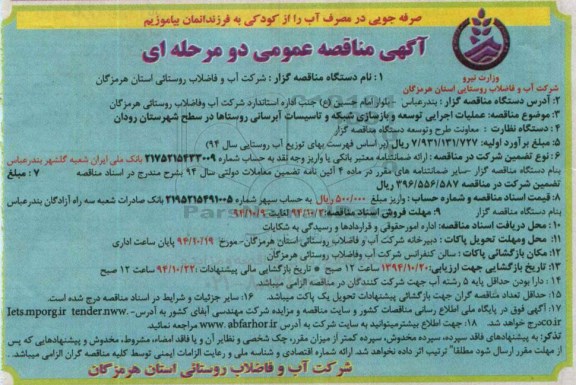 صرفه جویی در مصرف آب را از کودکی به فرزندانمان بیاموزیم
آگهی مناقصه عمومی دو مرحله ای
وزارت نیرو
شرکت آب و فاضلاب روستایی استان هرمزگان
۱ : نام دستگاه مناقصه گزار : شرکت آب و فاضلاب روستائی استان هرمزگان
۲: آدرس دستگاه مناقصه گزار : بندرعباس - بلوار امام حسین (ع) جنب اداره استاندارد شرکت آب وفاضلاب روستائی هرمزگان
۳: موضوع مناقصه: عملیات اجرایی توسعه و بازسازی شبکه و تاسیسات آبرسانی روستاها در سطح شهرستان رودان
۴ : دستگاه نظارت : معاونت طرح وتوسعه دستگاه مناقصه گزار
۵: مبلغ برآورد اولیه: ۷/۹۳۱/۱۳۱/۷۲۷ ریال (بر اساس فهرست بهای توزیع آب روستایی سال ۹۴)
۶ : نوع تضمین شرکت در مناقصه : ارائه ضمانتنامه معتبر بانکی یا واریز وجه نقد به حساب شماره ۲۱۷۵۲۱۵۴۳۳۰۰۹ بانک ملی ایران شعبه گلشهر بندرعباس
بنام دستگاه مناقصه گزار -سایر ضمانتنامه های مقرر در ماده ۴ آئین نامه تضمین معاملات دولتی سال ۹۴ بشرح مندرج در اسناد مناقصه ۷ : مبلغ
تضمین شرکت در مناقصه ۳۹۶/۵۵۶/۵۸۷ ریال
۸: قیمت اسناد مناقصه و شماره حساب : واریز مبلغ ۵۰۰/۰۰۰ ریال به حساب سپهر شماره ۲۱۹۵۲۱۵۴۹۱۰۰۵ بانک صادرات شعبه سه راه آزادگان بندرعباس
بنام دستگاه مناقصه گزار ۹: مهلت فروش اسناد مناقصه: لغایت ۹۴/۱۰/۹
۱۰: محل دریافت اسناد مناقصه: اداره امورحقوقی و قراردادها و رسیدگی به شکایات
۱۱: محل ومهلت تحویل پاکات : دبیرخانه شرکت آب و فاضلاب روستائی استان هرمزگان- مورخ ۹۴/۱۰/۱۹ پایان ساعت اداری
۱۲: مکان بازگشائی پاکات : سالن کنفرانس شرکت آب وفاضلاب روستائی هرمزگان
۱۳: تاریخ بازگشایی جهت ارزیابی: ۱۳۹۴/۱۰/۲۰ ساعت ۱۲ صبح * تاریخ بازگشایی مالی پیشنهادات : ۹۴/۱۰/۲۲ ساعت ۱۲ صبح
۱۴ : دارا بودن حداقل پایه ۵ رشته آب جهت شرکت کنندگان در مناقصه الزامی میباشد.
۱۵: حداقل تعداد مناقصه گران جهت بازگشائی پیشنهادات تحویل یک پاکت میباشد ۱۶: سایر جزئیات و شرایط در اسناد مناقصه درج شده است.
۱۷: آگهی فوق در پایگاه ملی اطلاع رسانی مناقصات کشور و سایت مناقصه و مزایده شرکت مهندسی آبفای کشور به آدرس- Iets.mporg.ir tender.nww.
co.irدرج خواهد شد. ۱۸: جهت اطلاع بیشترمیتوانید به سایت شرکت به آدرس www.abfarhor.ir مراجعه نمائید.
تذکر: به پیشنهادهای فاقد سپرده، سپرده مخدوش، سپرده کمتر از میزان مقرر، چک شخصی و نظایر آن و یا فاقد امضاء، مشروط، مخدوش و پیشنهادهایی که پس
از مهلت مقرر ارسال شود مطلقا" ترتیب اثر داده نخواهد شد. ارائه شماره اقتصادی و شناسه ملی و رعایت الزامات ایمنی توسط کلیه مناقصه گران الزامی میباشد .
شرکت آب و فاضلاب روستائی استان هرمزگان